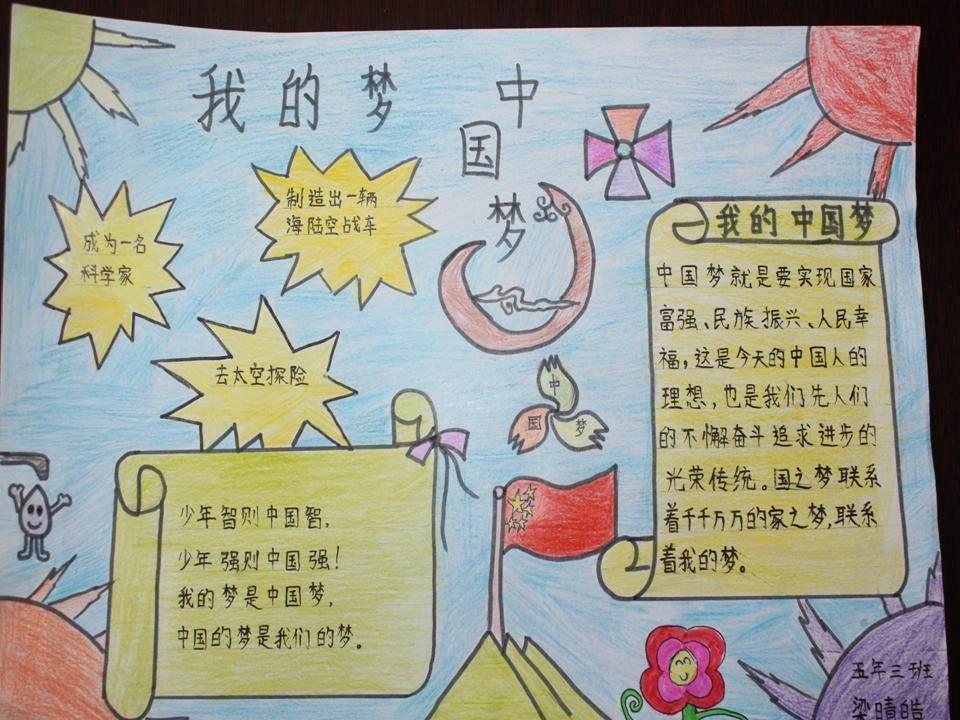 我的梦 中
国
梦
成为一名
科学家
制造出一辆
海陆空战车
去太空探险
中
国 梦
少年智则中国智，
少年强则中国强！
我的梦是中国梦，
中国的梦是我们的梦。
我的中国梦
中国梦就是要实现国家
富强、民族振兴、人民幸
福，这是今天的中国人的
理想，也是我们先人们
的不懈奋斗追求进步的
光荣传统。国之梦联系
着千千万万的家之梦，联系
着我的梦。
五年三班
梁晴皓